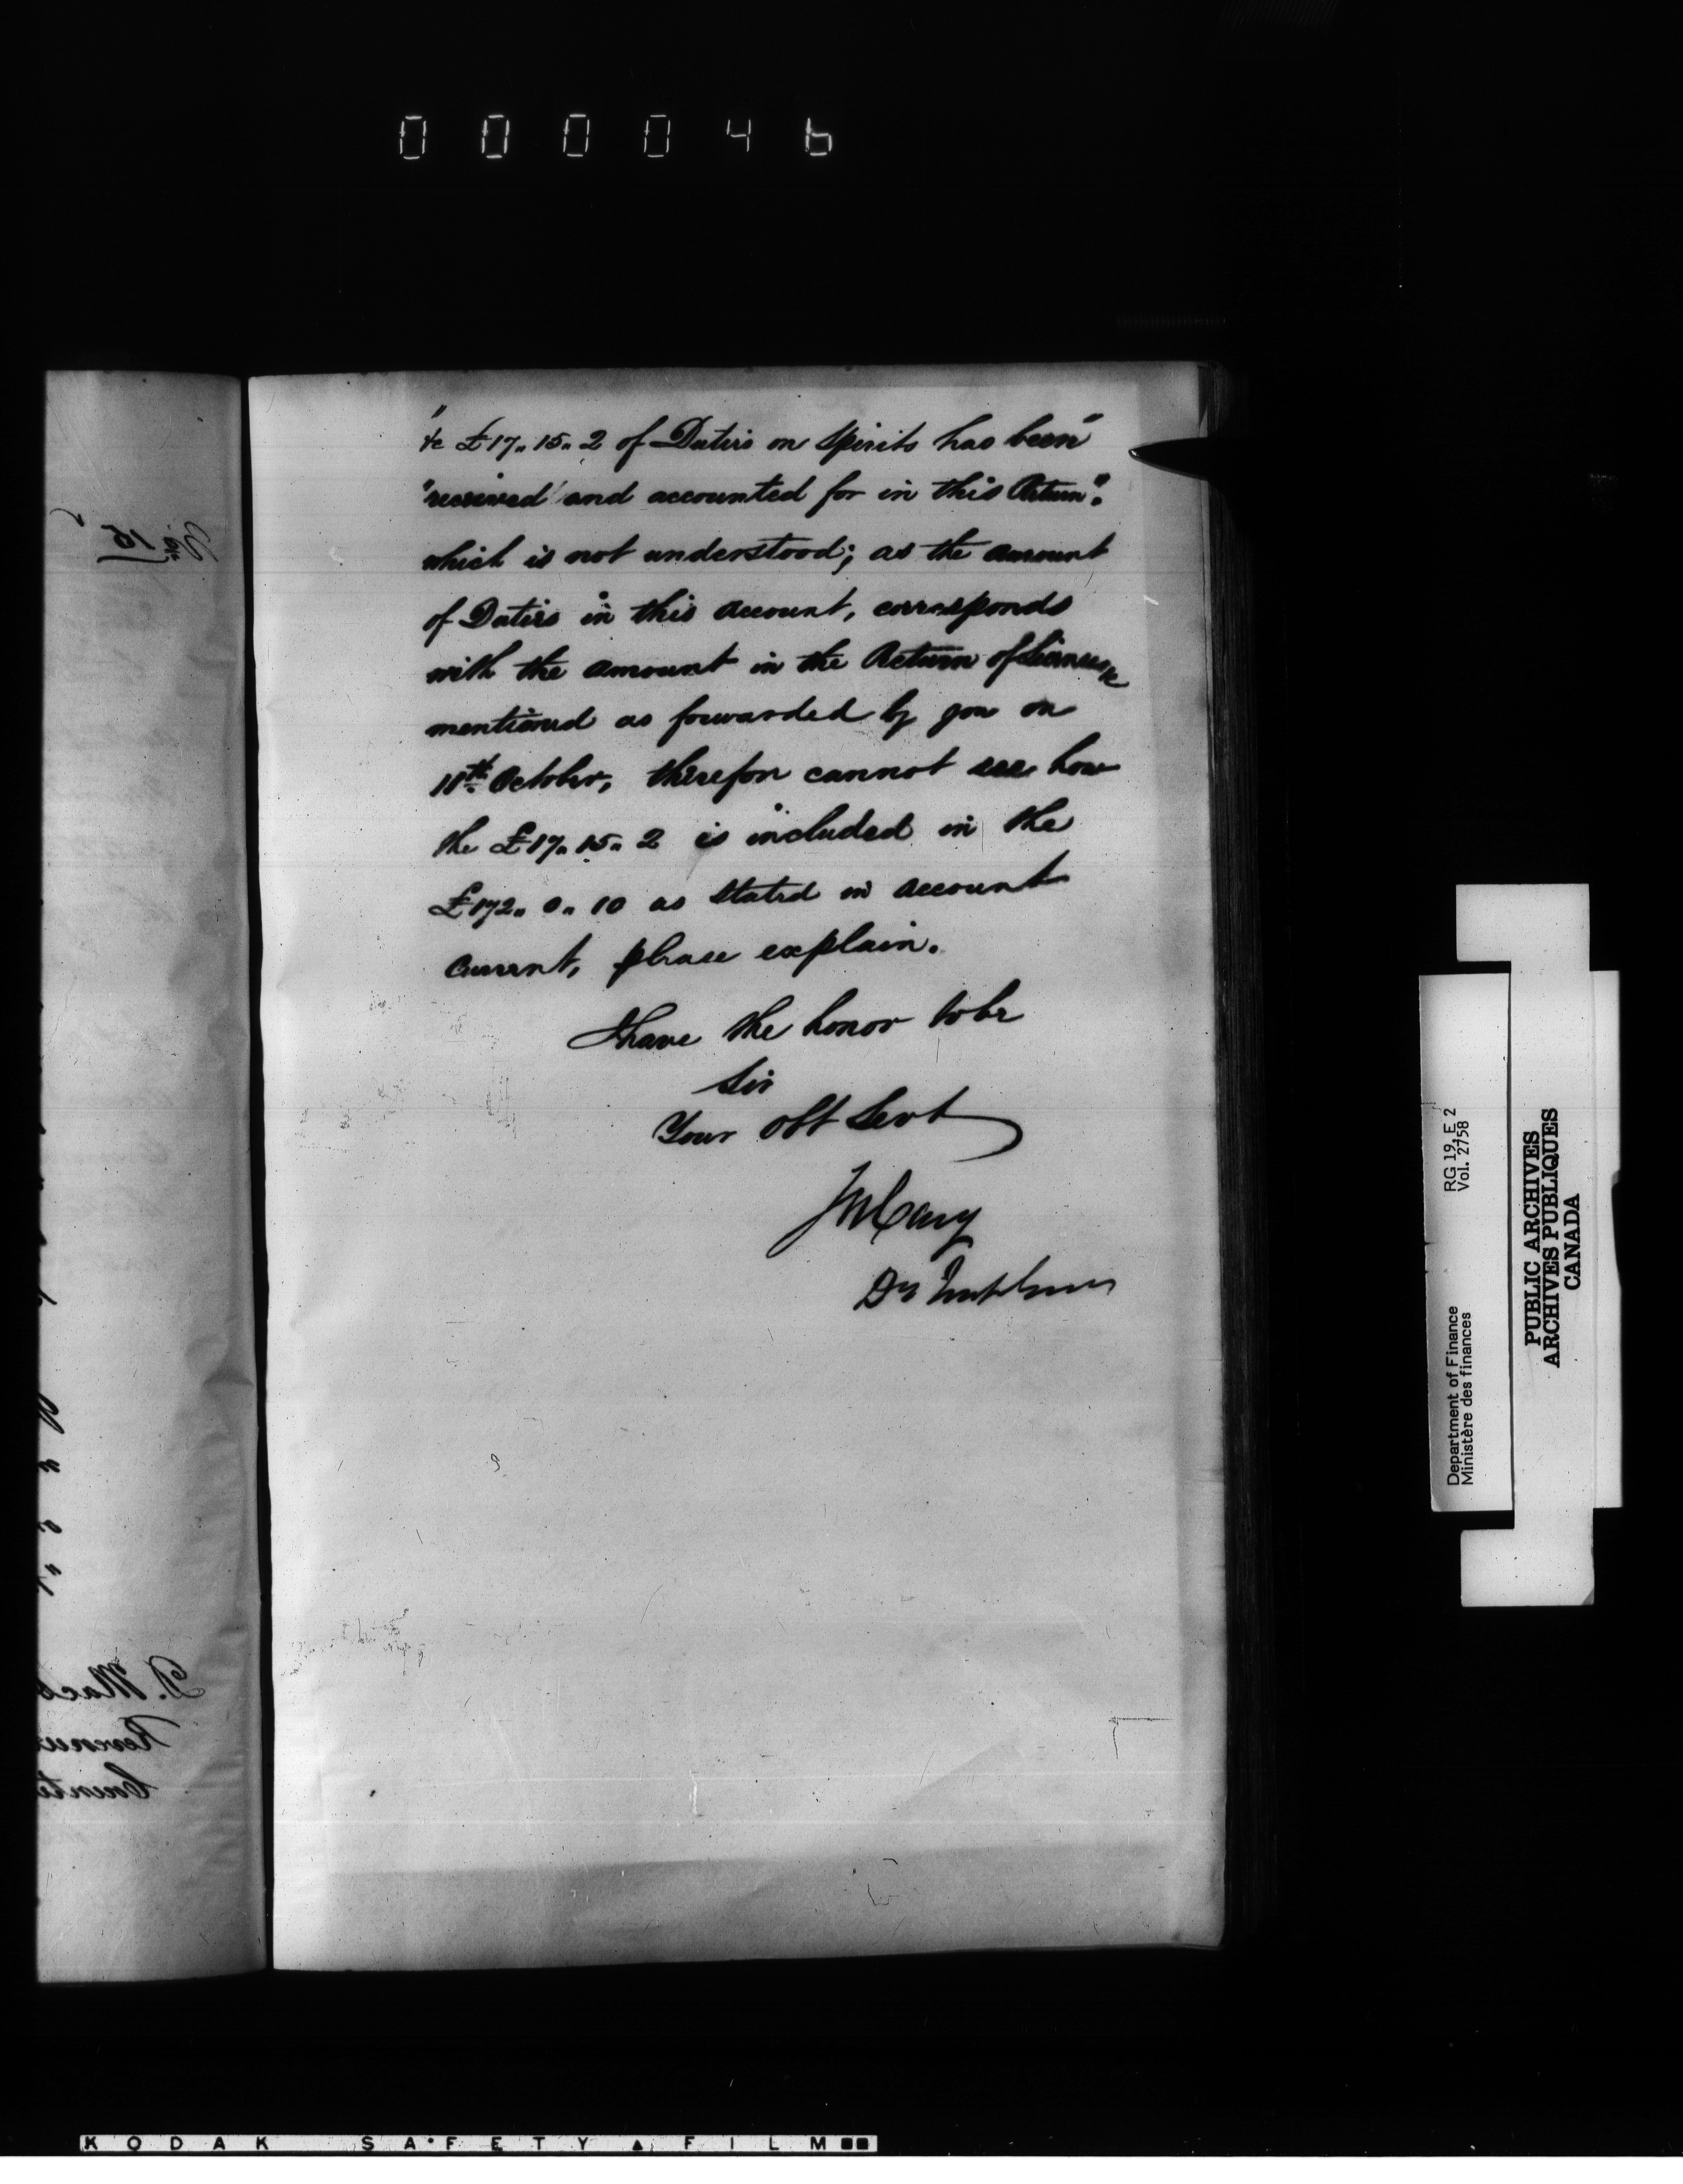 000046
"&c £17.. 15.. 2 of Duties on Spirits has been"
"received and accounted for in this Return".
which is not understood; as the amount
of Duties in this account, corresponds
with the amount in the Return of Licenses &c
mentioned as forwarded by you on
11th October, therefore cannot see how
the £17.. 15.. 2 is included in the
£172.. 0.. 10 as stated in account
Current, please explain.
I have the honor to be
Sir
Your obt Servt
JWCary
Dy
15
D. Mac
Revenue
Counti
Department of Finance
Ministère des finances
RG 19, E 2
Vol. 2758
PUBLIC ARCHIVES
ARCHIVES PUBLIQUES
CANADA
KODAK SAFETY FILM